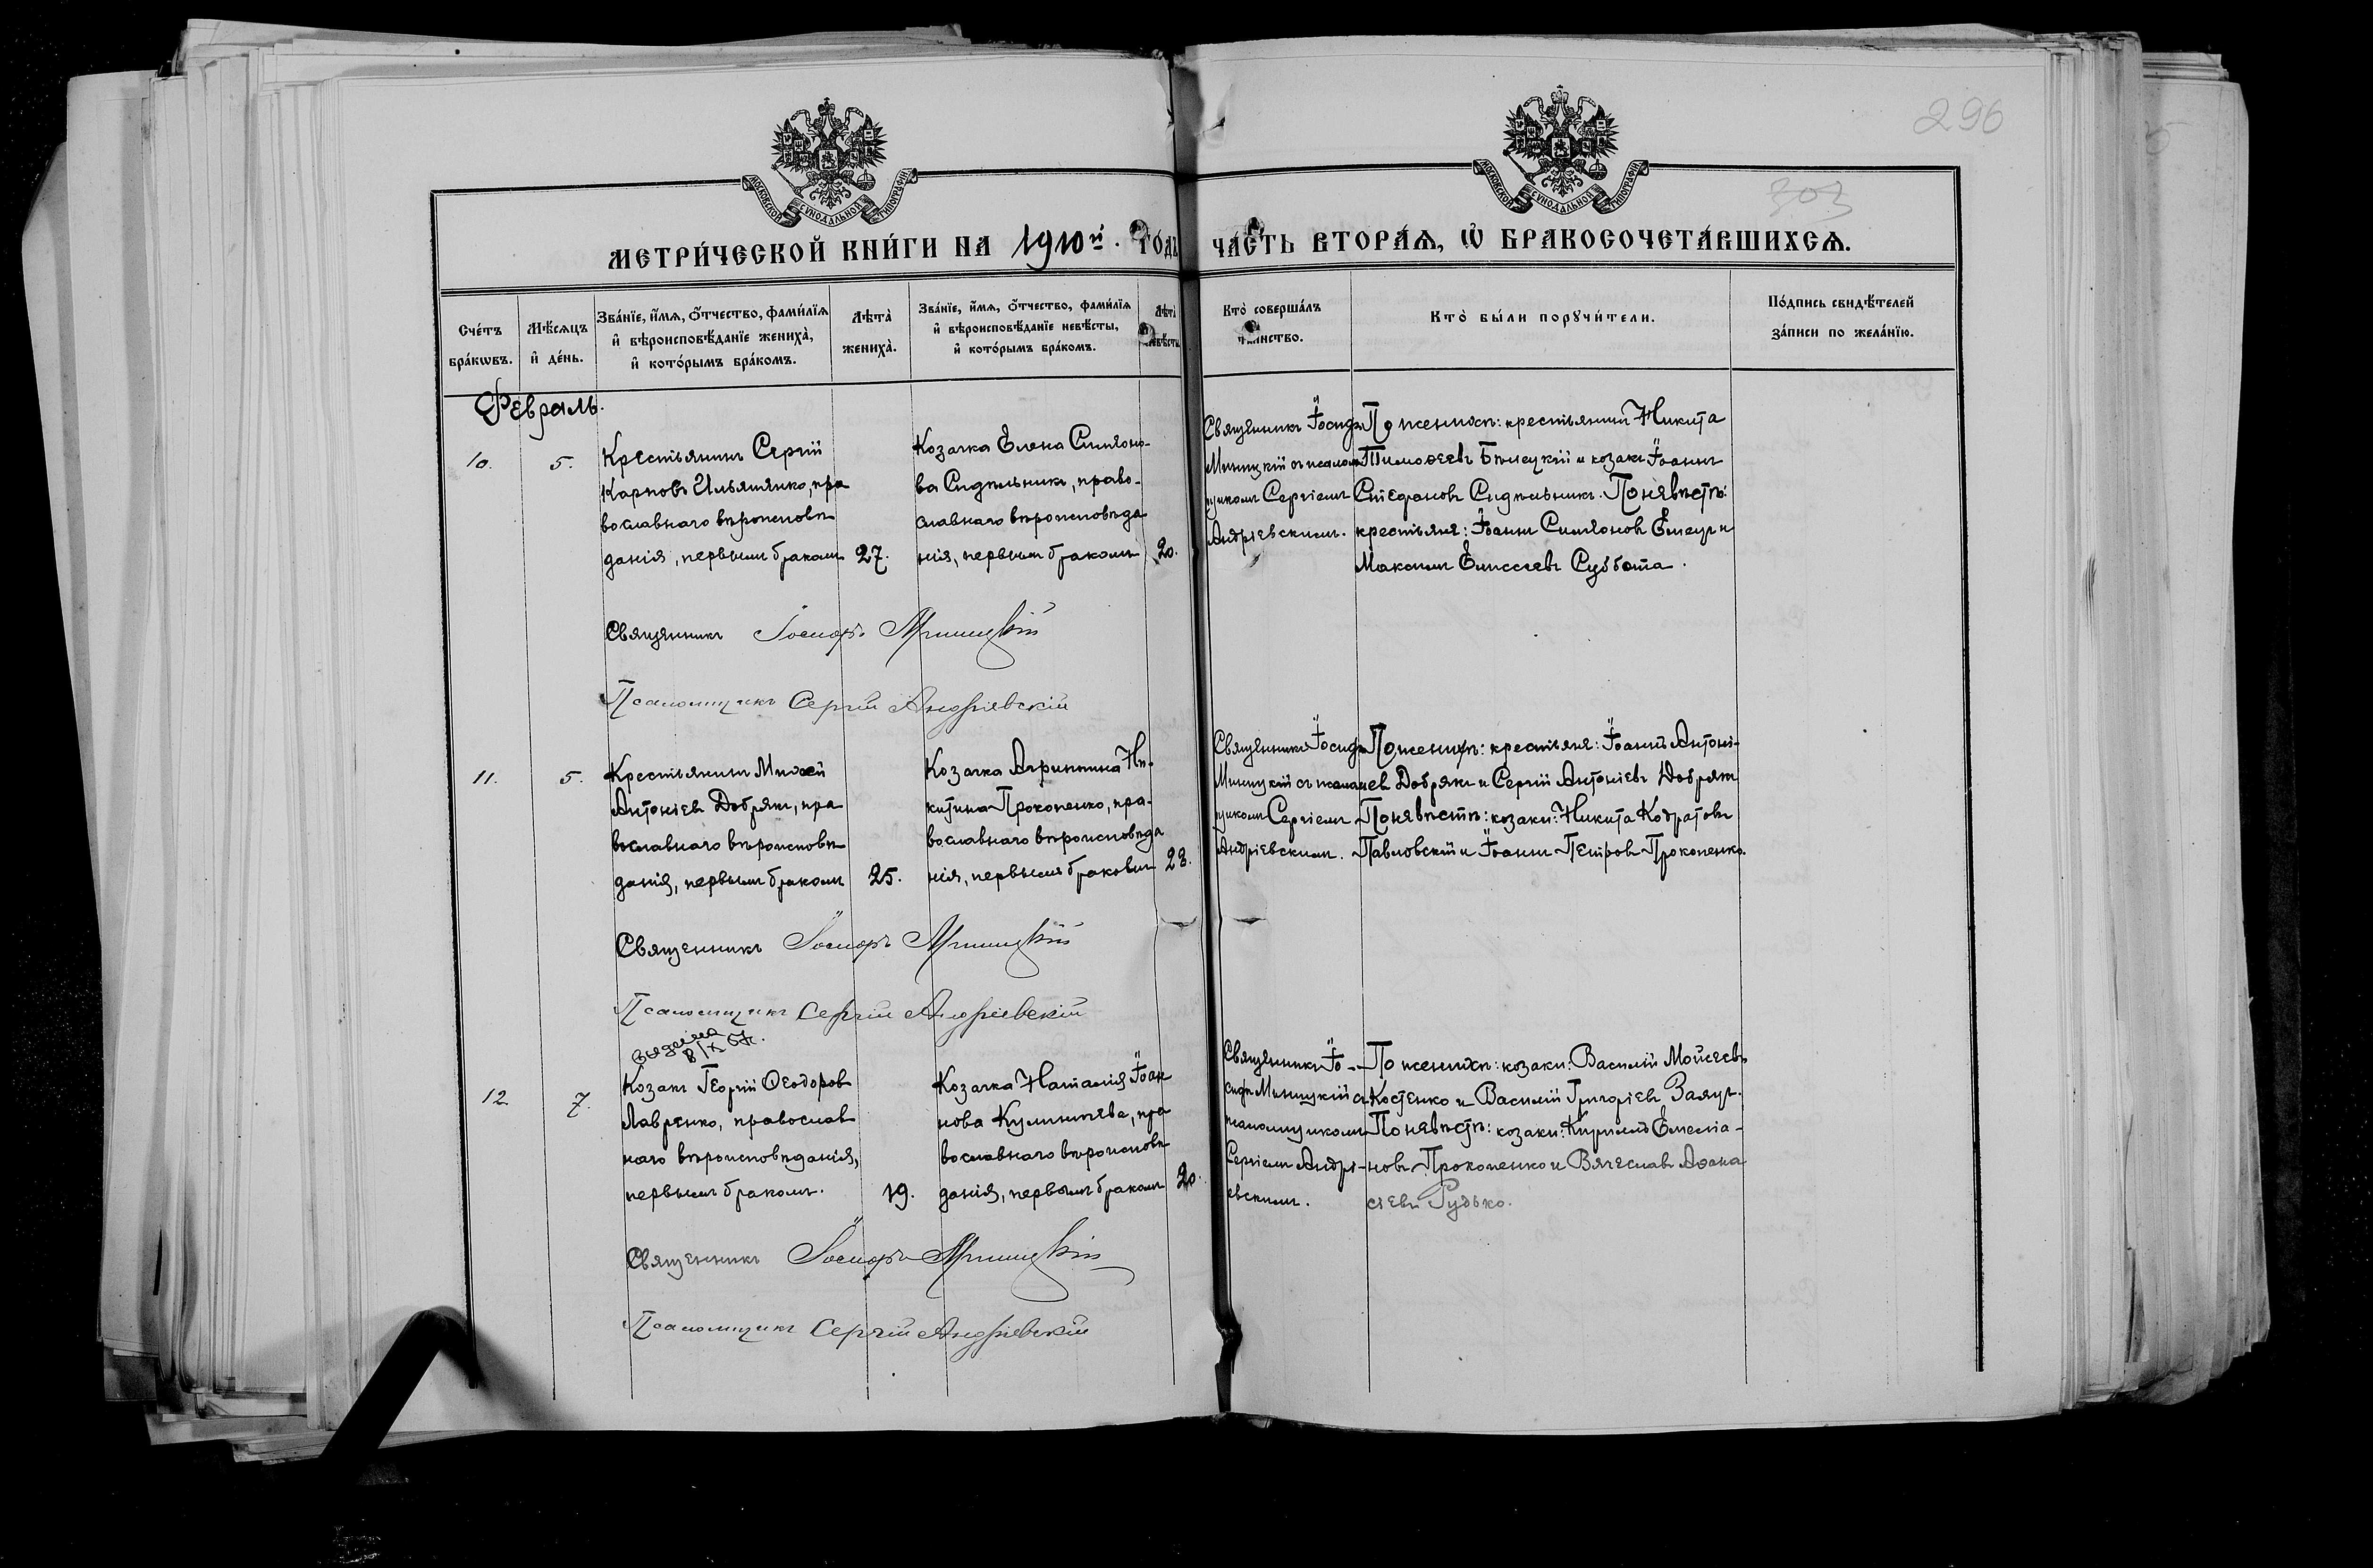 296
303
МОСКОВСКОЙ СѴНОДАЛЬНОЙ ТИПОГРАФІИ
МОСКОВСКОЙ СѴНОДАЛЬНОЙ ТИПОГРАФІИ
МЕТРИ́ЧЕСКОЙ КНИ́ГИ НА 1910й. ГО́ДЪ ЧА́СТЬ ВТОРА́Ѧ, Ѡ҆ БРАКОСОЧЕТА́ВШИХСѦ.
Сче́тъ бра́кѡвъ.
Мѣ́сѧцъ и҆ де́нь.
Зва́нїе, и҆́мѧ, ѻ҆́тчество, фами́лїѧ и҆ вѣроисповѣ́данїе жениха̀, и҆ кото́рымъ бра́комъ.
Лѣта̀ жениха̀.
Зва́нїе, и҆́мѧ, ѻ҆́тчество, фами́лїѧ и҆ вѣроисповѣ́данїе невѣ́сты, и҆ кото́рымъ бра́комъ.
Лѣта̀ невѣ́сты
Кто̀ соверша́лъ та́инство.
Кто̀ бы́ли порꙋчи́тели.
По́дпись свидѣ́телей за́писи по жела́нїю.
Февраль.
10.
5.
Крестьянинъ Сергій
Карповъ Ильяшенко, пра
вославнаго вѣроисповѣ
данія, первымъ бракомъ
27.
Козачка Елена Симеоно-
ва Сидѣльникъ, право-
славнаго вѣроисповѣда
нія, первымъ бракомъ
20.
Священникъ Іосифъ
Мшицкій съ псалом
щикомъ Сергіемъ
Андріевскимъ.
По женихѣ: крестьянинъ Никита
Тимоѳеевъ Бѣлецкій и козакъ Іоаннъ
Стефановъ Сидѣльникъ. По невѣстѣ:
крестьяне: Іоаннъ Симеоновъ Емецъ и
Максимъ Елисеевъ Суббота.
Священникъ Іосифъ Мшицкій
Псаломщикъ Сергій Андріевскій
11.
5.
Крестьянинъ Михей
Антоніевъ Добрякъ, пра
вославнаго вѣроисповѣ
данія, первымъ бракомъ
25.
Козачка Агрипина Ни-
китина Прокопенко, пра-
вославнаго вѣроисповѣда
нія, первымъ бракомъ
23.
Священникъ Іосифъ
Мшицкій съ псалом
щикомъ Сергіемъ
Андріевскимъ.
По женихѣ: крестьяне: Іоаннъ Антоні-
евъ Добрякъ и Сергій Антоніевъ Добрякъ
По невѣстѣ: козаки: Никита Кодратовъ
Павловскій и Іоаннъ Петровъ Прокопенко.
Священникъ Іосифъ Мшицкій
Псаломщикъ Сергій Андріевскій
12.
7.
Козакъ Георгій Ѳеодоровъ
Лавренко, православ
наго вѣроисповѣданія,
первымъ бракомъ.
19.
Козачка Наталія Іоан
нова Кулиничева, пра
вославнаго вѣроисповѣ
данія, первымъ бракомъ
20.
Священникъ Іо-
сифъ Мшицкій съ
псаломщикомъ
Сергіемъ Андрі-
евскимъ.
По женихѣ: козаки: Василій Мойсеевъ
Костенко и Василій Григоріевъ Заяцъ.
По невѣстѣ: козаки: Кириллъ Емеліа-
новъ Прокопенко и Вячеславъ Аѳана
сіевъ Рудько.
Священникъ Іосифъ Мшицкій
Псаломщикъ Сергій Андріевскій